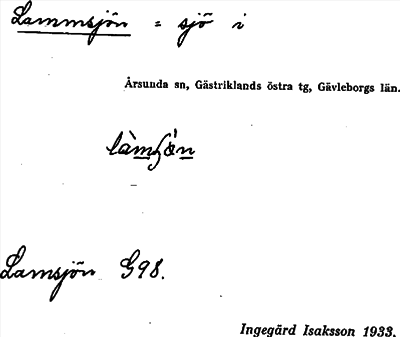 Lammsjön = sjö i
Årsunda sn, Gästriklands östra tg, Gävleborgs län.
Lamsjön G98.
Ingegärd Isaksson 1933.